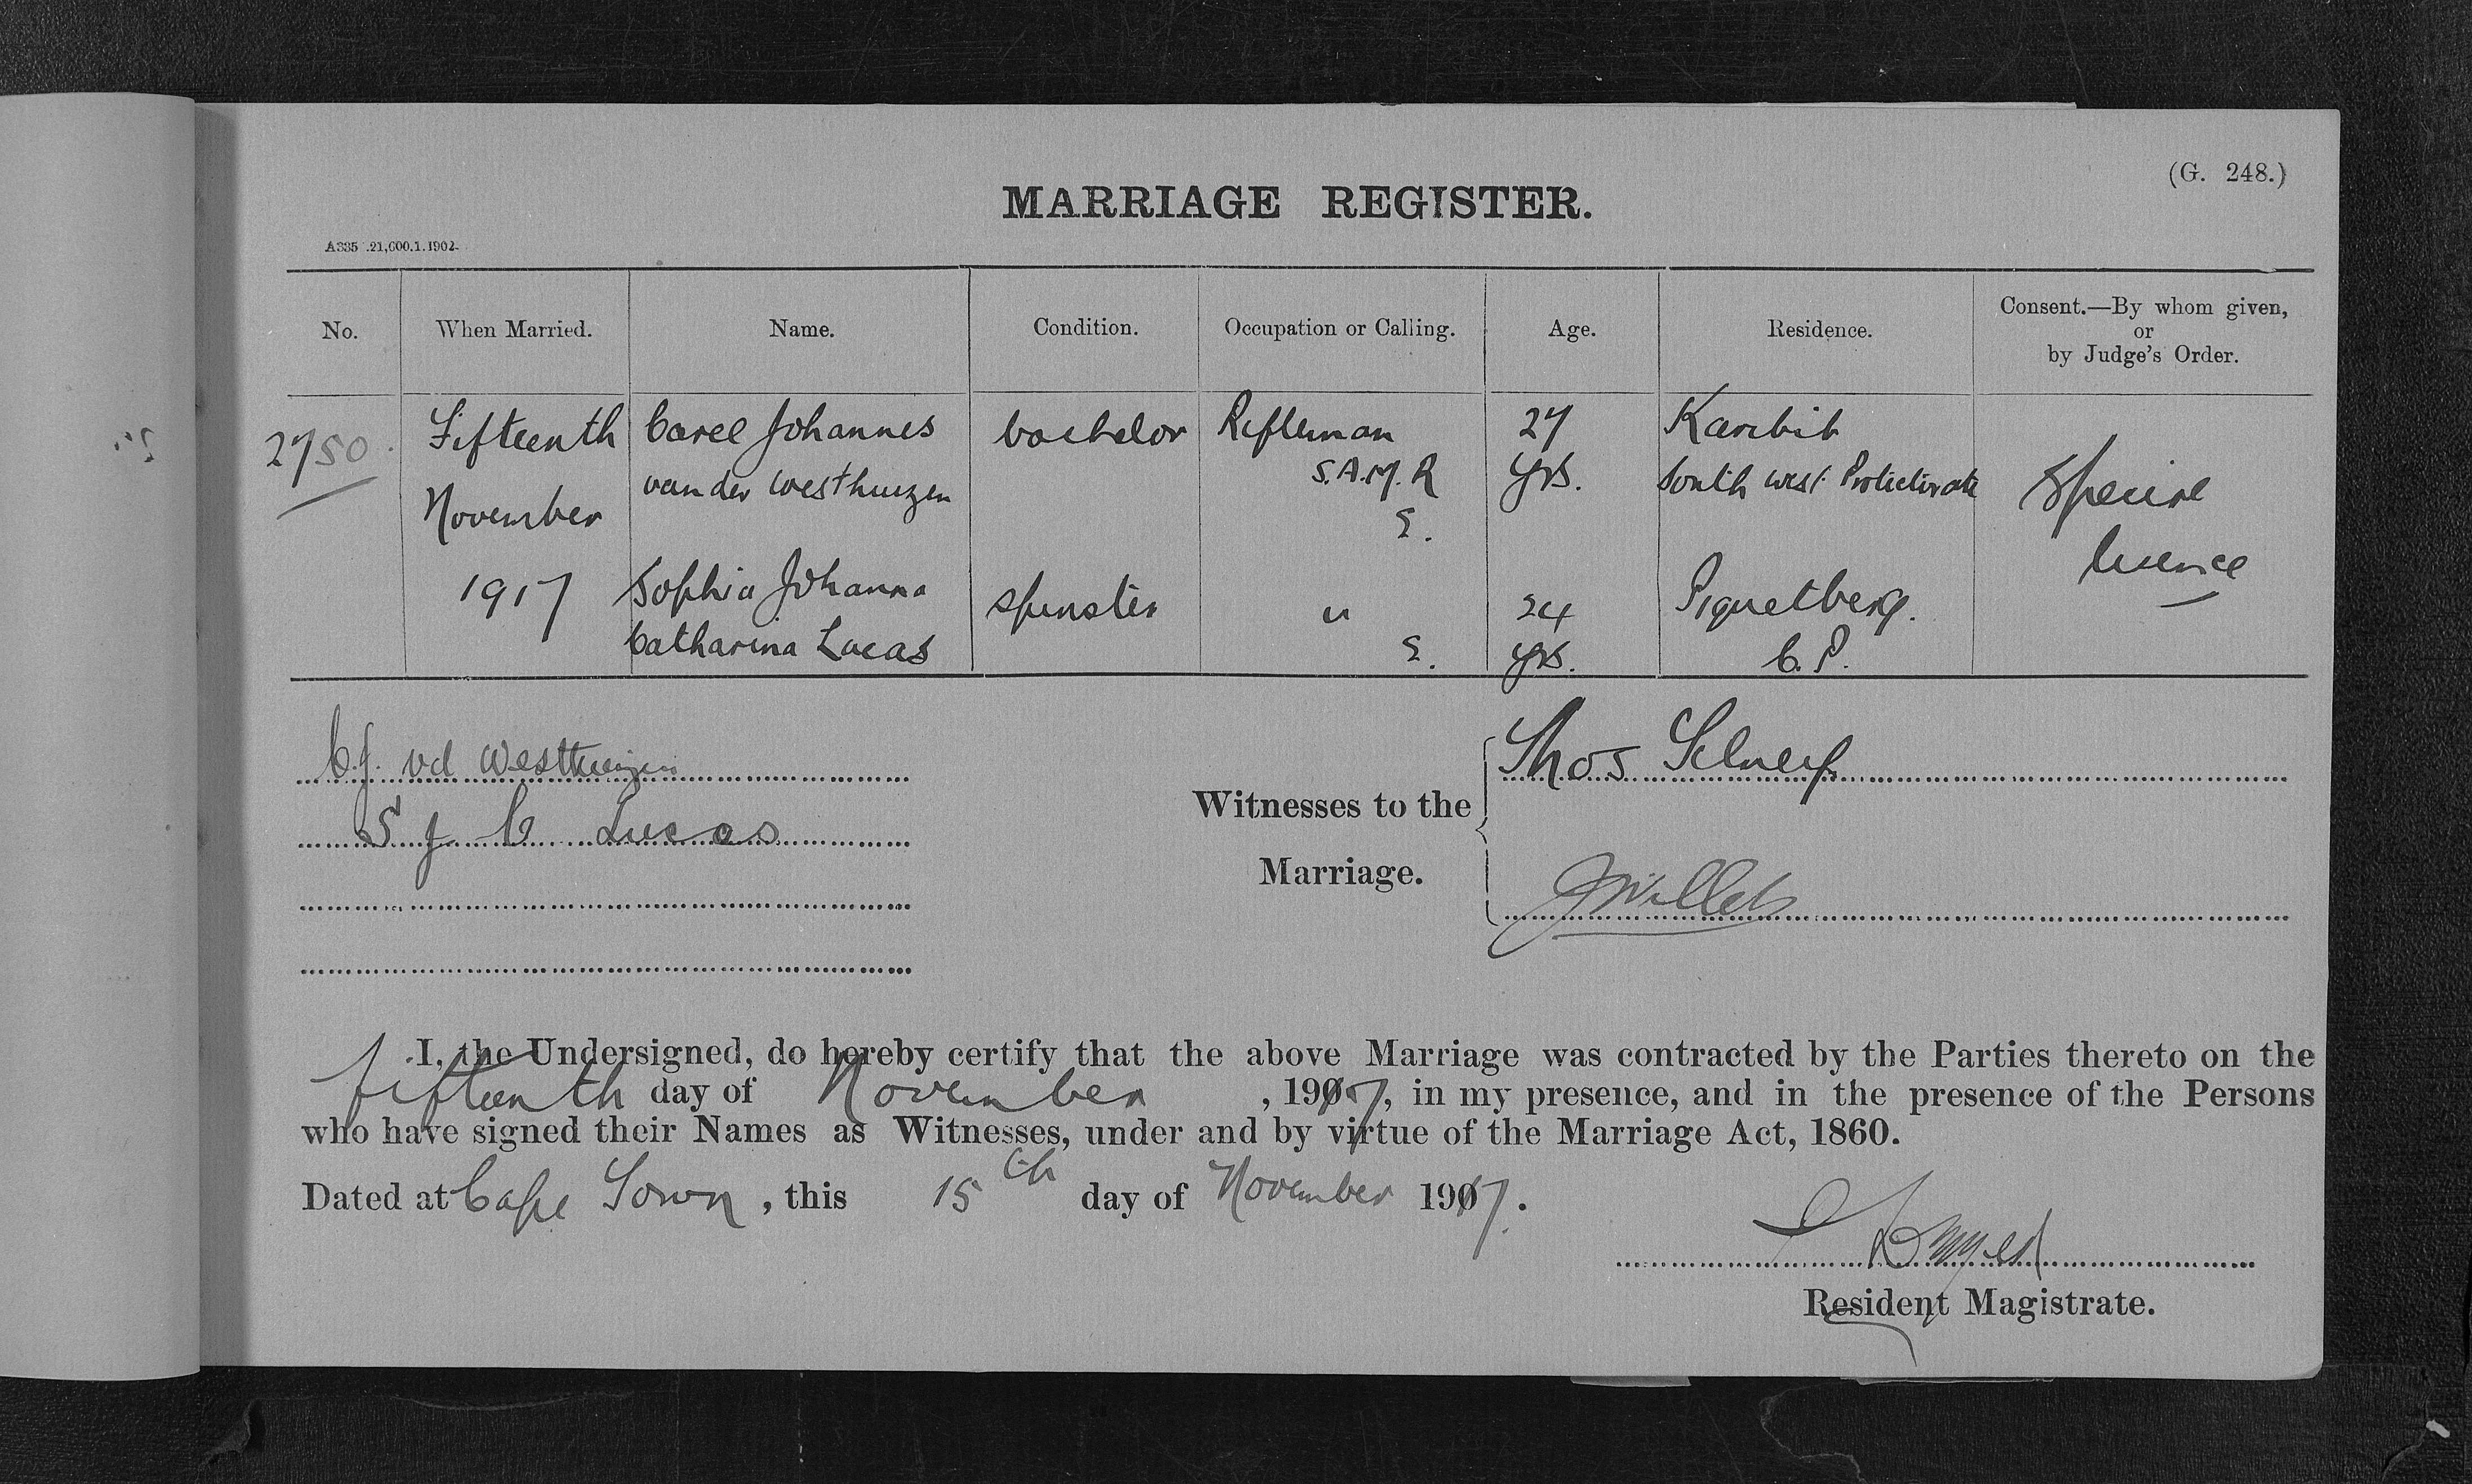 (G. 248.)
MARRIAGE REGISTER.
No. When Married. Name. Condition. Occupation or Calling. Age. Residence. Consent.—By whom given, or by Judge's Order.
2750 Fifteenth Carel Johannes bachelor Rifleman 27 Karibib
van der Westhuizen S.A.M.R yrs. South West Protectorate Special
November E. licence
1917 Sophia Johanna spinster " 24 Piquetberg.
Catharina Lucas E. yrs. C.P.
C.J. vd Westhuizen
S J C Lucas
Witnesses to the Marriage.
Thos
I, the Undersigned, do hereby certify that the above Marriage was contracted by the Parties thereto on the
fifteenth day of November, 1917, in my presence, and in the presence of the Persons
who have signed their Names as Witnesses, under and by virtue of the Marriage Act, 1860.
Dated at Cape Town, this 15th day of November 1917.
Resident Magistrate.